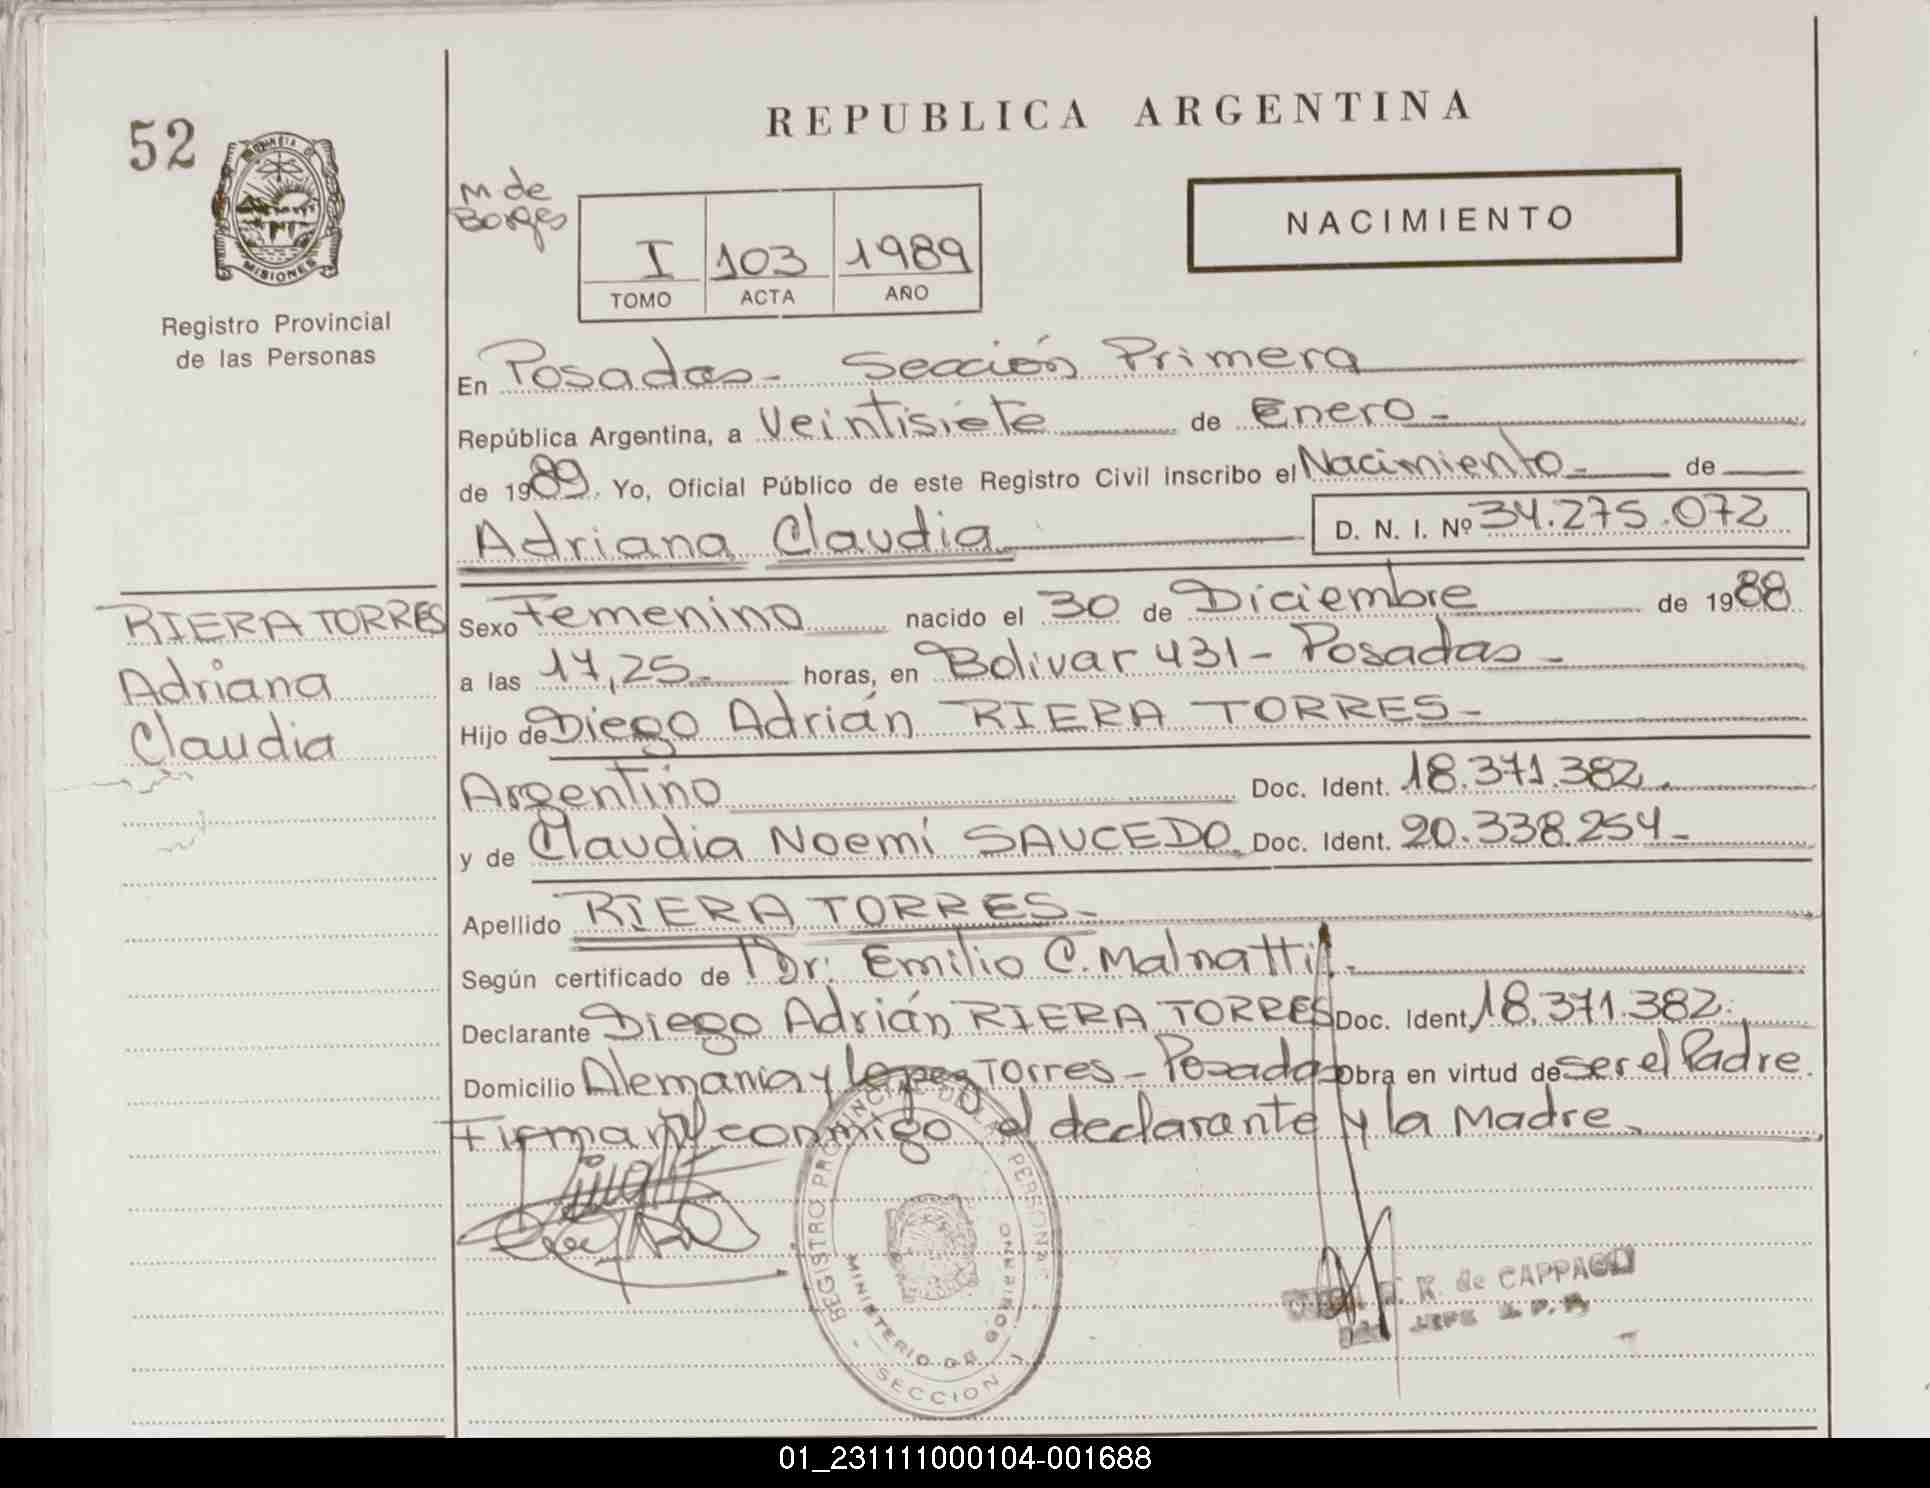 52
MISIONES
Registro Provincial
de las Personas
REPUBLICA ARGENTINA
M de
Borges
I 103 1989
TOMO ACTA AÑO
NACIMIENTO
En Posadas - Sección Primera
República Argentina, a Veintisiete de Enero -
de 1989. Yo, Oficial Público de este Registro Civil inscribo el Nacimiento - de
Adriana Claudia D. N. I. Nº 34.275.072
RIERA TORRES
Adriana
Claudia
Sexo Femenino nacido el 30 de Diciembre de 1988
a las 17,25 - horas, en Bolivar 431 - Posadas -
Hijo de Diego Adrián RIERA TORRES -
Argentino Doc. Ident. 18.371.382.
y de Claudia Noemí SAUCEDO Doc. Ident. 20.338.254 -
Apellido RIERA TORRES -
Según certificado de Dr: Emilio C. Malnatti -
Declarante Diego Adrián RIERA TORRES Doc. Ident. 18.371.382.
Domicilio Alemania y Lopez Torres - Posadas Obra en virtud de ser el Padre.
Firman conmigo el declarante y la Madre.
REGISTRO PROVINCIAL DE LAS PERSONAS
MINISTERIO DE GOBIERNO
SECCION
R. de CAPPAGO
JEFE
01_231111000104-001688